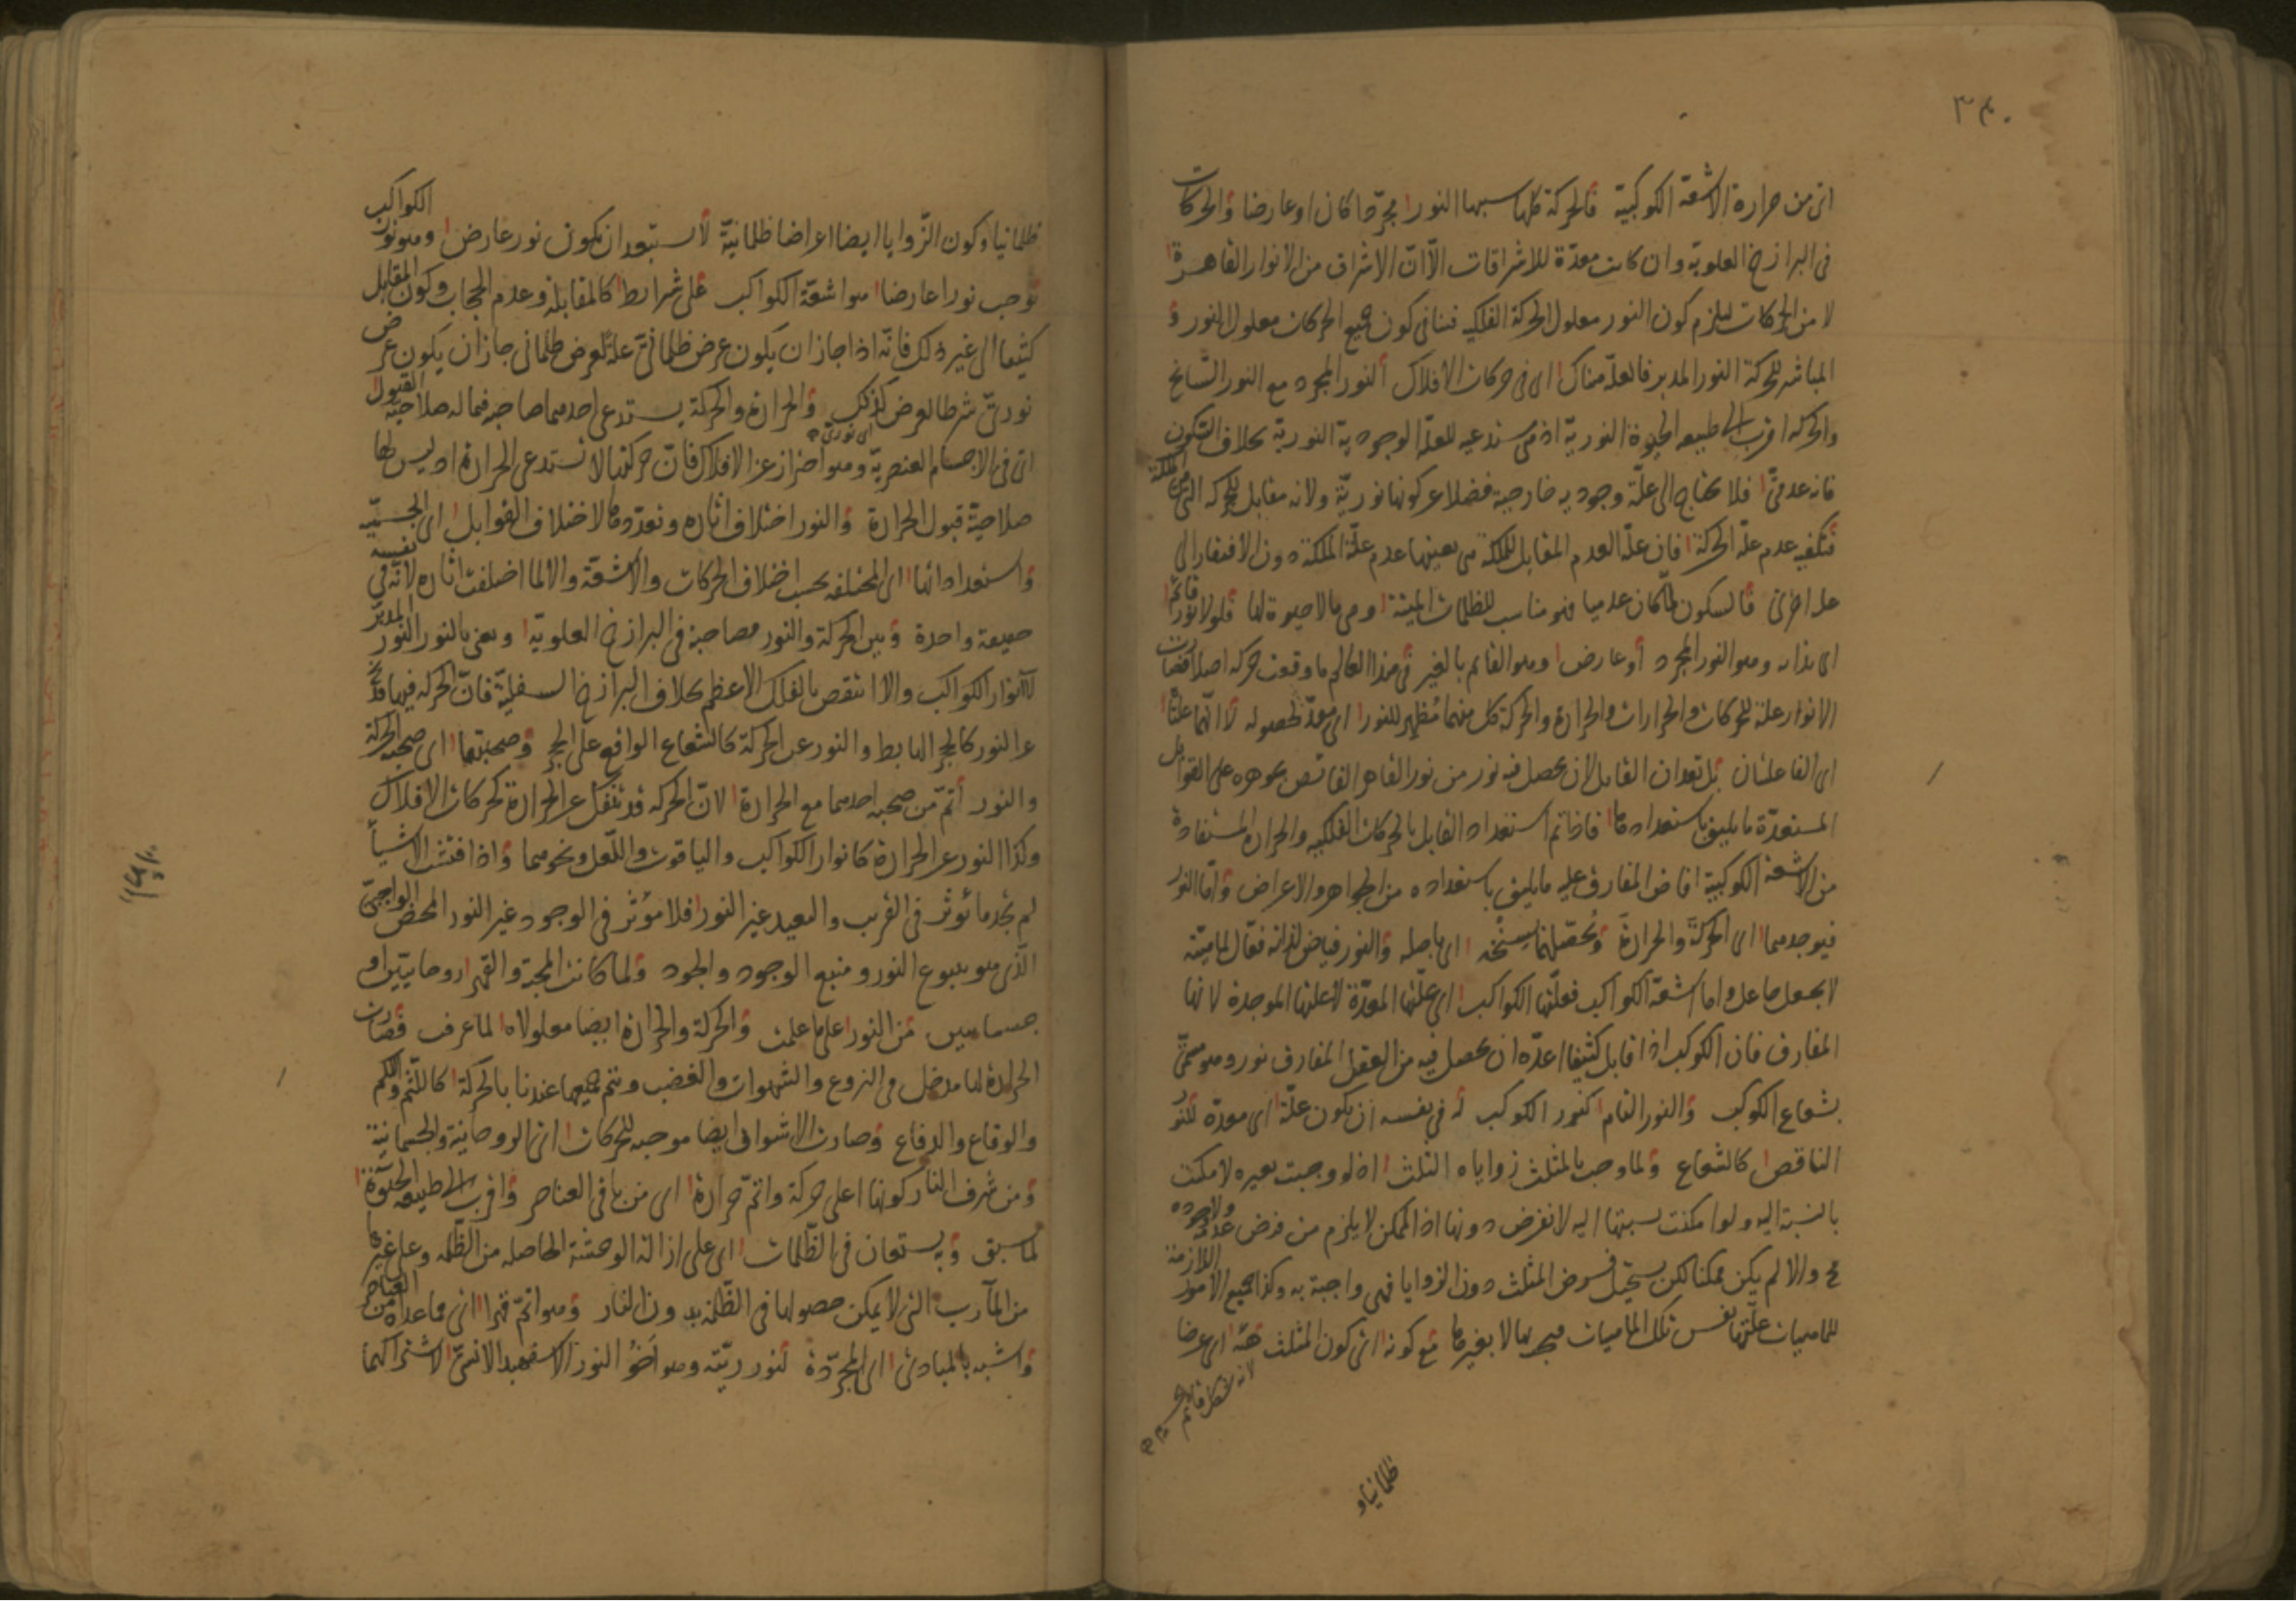 ٣٤٠
اى من حرارة الاشعّة الكوكبيّة فالحركة كلها سببها النور امجرّدا كان او عارضا والحركات
فى البرازخ العلويّة وان كانت معدّة للاشراقات الّا انّ الاشراق من الانوار القاهرة
لا من الحركات ليلزم كون النور معلول الحركة الفلكيه فينافى كون جميع الحركات معلول النور و
المباشر للحركة النور المدبر فالعلّة هناك اى فى حركات الافلاك النور المجرد مع النور السّانح
والحركه اقرب الى طبيعه الحيوة النوريّة اذ هى تستدعيه للعلّة الوجوديّة النورية بخلاف السكون
فانه عدمىّ فلا يحتاج الى علّة وجوديه خارجية فضلا عن كونها نوريّة ولانه مقابل للحركه التى هى الملكة
فيكفيه عدم علّة الحركة فان علّة العدم المقابل للملكة هى بعينها عدم علّة الملكة دون الافتقار الى
علة اخرى فالسكون لمّا كان عدميا فهو مناسب للظلمات الميتة وهى ما لا حيوة لها فلولا نور قائم
اى بذاته وهو النور المجرد او عارض وهو القايم بالغير فى هذا العالم ما وقعت حركه اصلا فصارت
الانوار علة للحركات والحرارات والحرارة والحركة كل منهما مُظهر للنور اى معدّ لحصوله لا انّهما علّتاه
اى الفاعلتان بل تعدان القابل لان يحصل فيه نور من نور القاهر الفائض بجوهره على القوابل
المستعدّة ما يليق باستعدادها فاذا تم استعداد القابل بالحركات الفلكيه والحرارة المستفادة
من الاشعّة الكوكبيّة افاض المفارق عليه ما يليق باستعداده من الجواهر والاعراض وامّا النور
فيوجدهما اى الحركة والحرارة وتُحصّلهما بسِنْخه اى باصله والنور فياض لذاته فعّال لماهيّته
لا بجعل جاعل واما اشعّة الكواكب فعلّتها الكواكب اى علّتها المعدّة لا علّتها الموجدة لانها
المفارق فان الكوكب اذا قابل كثيفا اعدّه ان يحصل فيه من العقل المفارق نور وهو مسمّى
بشعاع الكوكب والنور التام كنور الكوكب له فى نفسه ان يكون علّة اى معدّة للنور
الناقص كالشعاع ولما وجب بالمثلث زواياه الثلث اذ لو وجبت بغيره لامكنت
بالنسبة اليه ولو امكنت نسبتها اليه لانفرض دونها اذ الممكن لا يلزم من فرض عدمه ولا وجوده
مح والا لم يكن ممكنا لكن يستحيل فرض المثلث دون الزوايا فهى واجبة به وكذا جميع الامور اللازمة
للماهيات علّتها نفس تلك الماهيات فيجب بها لا بغيرها مع كونه اى كون المثلث هيئة اى عرضا
لانه شكل قائم بالجسم
ظلمانيا و
ظلمانيا وكون الزّوايا ايضا اعراضا ظلمانيّة لا يستبعد ان يكون نور عارض وهو نور الكواكب
توجب نورا عارضا هو اشعّة الكواكب على شرائط كالمقابلة وعدم الحجاب وكون المقابل
كثيفا الى غير ذلك فانّه اذا جاز ان يكون عرض ظلمانىّ علّة لعرض ظلمانى جاز ان يكون عرض
نورىّ شرطا لعرض كذلك اى نورىّ والحرارة والحركة يستدعى احدهما صاحبه فيما له صلاحيّة القبول
اى فى الاجسام العنصريّة وهو احتراز عن الافلاك فانّ حركتها لا تستدعى الحرارة اذ ليس لها
صلاحيّة قبول الحرارة والنور اختلاف اثاره وتعدّدها لاختلاف القوابل اى الجسميّه
واستعداداتها اى المختلفه بحسب اختلاف الحركات والاشعّة والا لما اختلفت اثاره لانّه فى نفسه
حقيقة واحدة وبين الحركة والنور مصاحبة فى البرازخ العلويّة ويعنى بالنور النور المدبّر
لا انوار الكواكب والا انتقض بالفلك الاعظم بخلاف البرازخ السفليّة فانّ الحركه فيها قد تنفك
عن النور كالحجر الهابط والنور عن الحركة كالشعاع الواقع على الحجر وصحبتهما اى صحبة الحركة
والنور اتمّ من صحبه احدهما مع الحرارة لانّ الحركه قد تنفك عن الحرارة كحركات الافلاك
وكذا النور عن الحرارة كانوار الكواكب والياقوت واللّعل ونحوهما واذا فتّشت الاشياء
لم تجد ما يُوثر فى القريب والبعيد غير النور فلا مؤثر فى الوجود غير النور المحض الواجبىّ
الّذى هو ينبوع النور ومنبع الوجود والجود ولما كانت المحبّة والقهر روحانيّين او
جسمانيين من النور على ما علمت والحركة والحرارة ايضا معلولاه لما عرفت فصارت
الحرارة لها مدخل فى النزوع والشهوات والغضب ويتم جميعها عندنا بالحركة كاللّثم واللّكم
والوقاع والدفاع وصارت الاشواق ايضا موجبه للحركات اى الروحانيّة والجسمانيّة
ومن شرف النار كونها اعلى حركة واتمّ حرارة اى من باقى العناصر واقرب الى طبيعه الحيوة
لما سبق وبه يستعان فى الظّلمات اى على ازالة الوحشة الحاصلة من الظّلمه وعلى غيرها
من المآرب التى لا يمكن حصولها فى الظّلمة بدون النار وهو اتمّ قهرا اى مما عداه من العناصر
واشبه بالمبادئ اى المجرّدة لنوريّته وهو اخو النور الاسفهبد الانسىّ لاشتراكهما